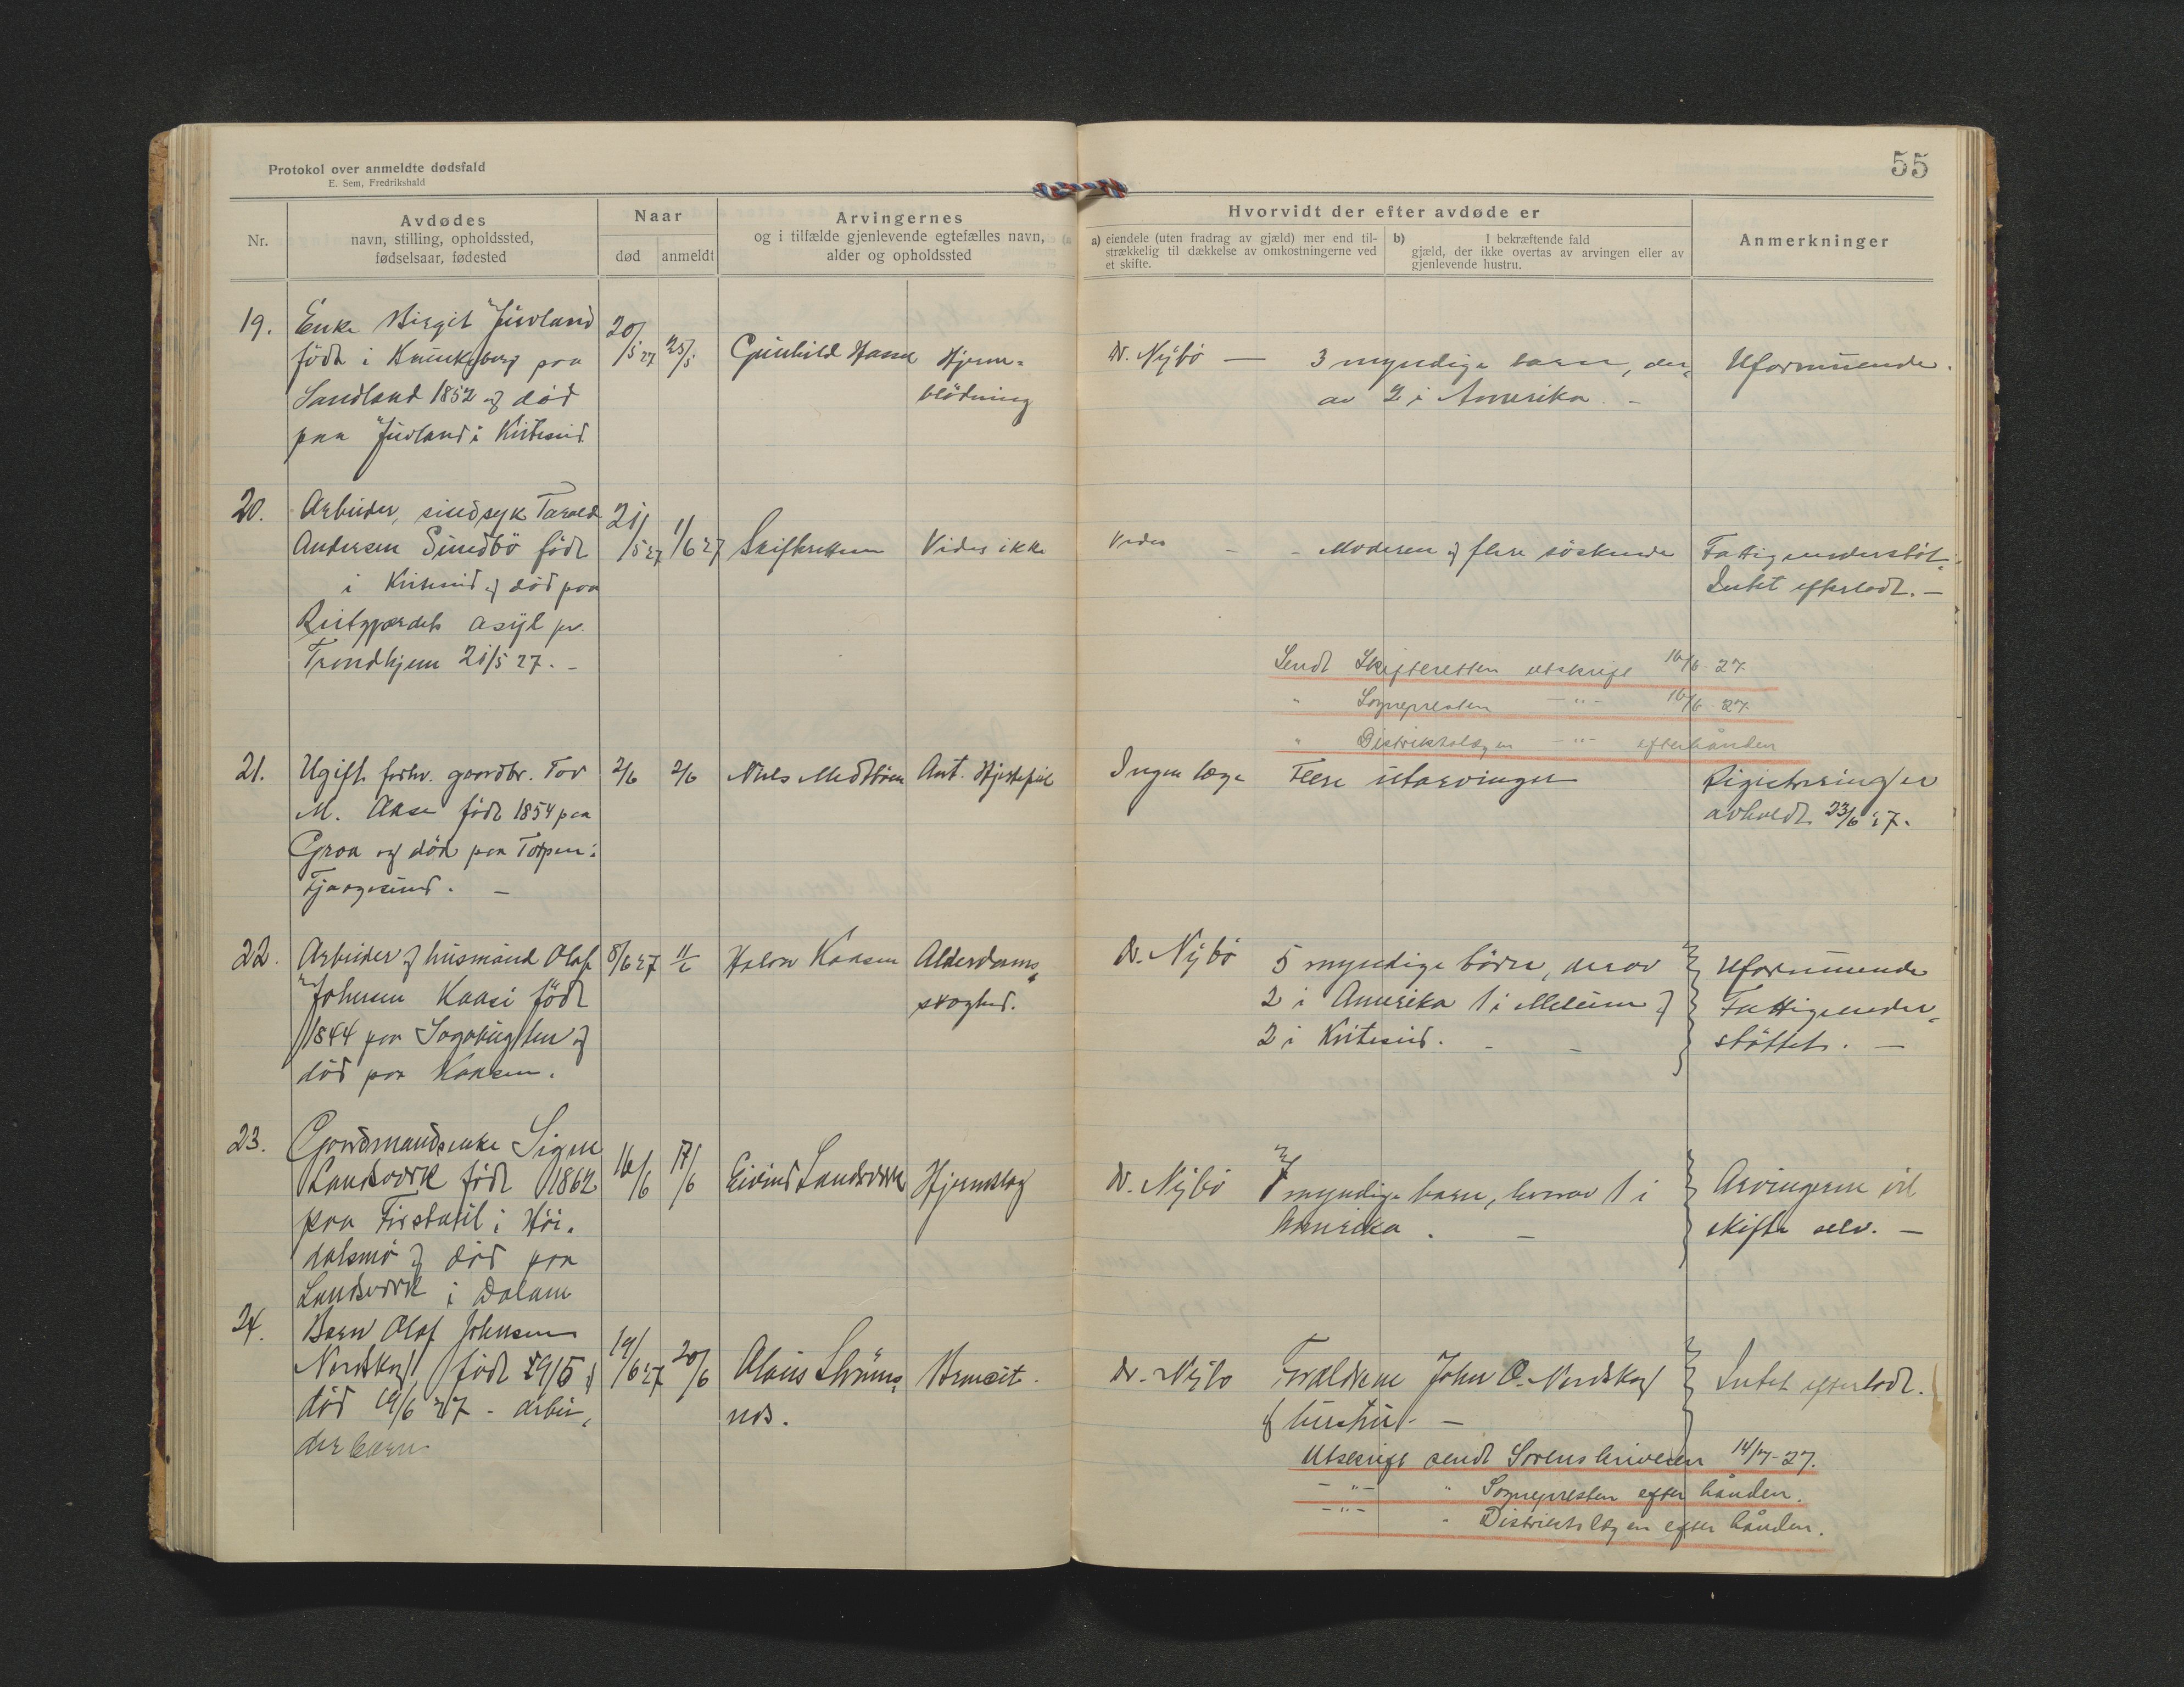 Protokol over anmeldte dødsfald
E. Sem, Fredrikshald
55
Nr.
Avdødes
navn, stilling, opholdssted,
fødselsaar, fødested
Naar
død
anmeldt
Arvingernes
og i tilfælde gjenlevende egtefælles navn,
alder og opholdssted
Hvorvidt der efter avdøde er
a) eiendele (uten fradrag av gjæld) mer end til-
strækkelig til dækkelse av omkostningerne ved
et skifte.
b) I bekræftende fald
gjæld, der ikke overtas av arvingen eller av
gjenlevende hustru.
Anmerkninger
19.
Enke Birgit Juvland
født i paa
Sandland 1852 og död
paa Juvland i Kviteseid
20/5 27
25/5
Gunhild
Hjerne-
blödning
Dr. Nybö —
3 myndige barn, der-
av 2 i Amerika. -
Uformuende.
20.
Arbeider, sindsyk Tarald
Andersen Sundbö født
i Kviteseid og död paa
Reitgjærdets asyl pr.
Trondhjem 21/5 27. -
21/5 27
1/6 27
Skifteretten
Vides ikke
Vides - -
Moderen og flere söskende
Fattigunderstöt.
Intet efterladt. —
Sendt Skifteretten utskrift 16/6-27
" Sognepresten —"— 16/6 27
" Distriktslægen —"— efterhånden
21.
Ugift forhv. gaardbr. Tov
M. Aase født 1854 paa
Groa og död paa Torpen i
Fjaagesund. —
2/6
2/6
Niels Medtbøen
Ant. Hjertefeil
Ingen læge
Flere utarvinger
Registrering er
avholdt 23/6 27.
22.
Arbeider og husmand Olaf
Johnsen Kaasi född
1844 paa og
död paa Kaasen.
8/6 27
11/6
Halvor Kaasen
Alderdoms-
svaghed.
Dr. Nybö
5 myndige börn, derav
2 i Amerika 1 i Melum og
2 i Kviteseid. - -
Uformuende
Fattigunder-
støttet. —
23.
Gaardmandsenke Signe
Landsverk født 1862
paa Firstøil i Høi-
dalsmo og död paa
Landsverk i Dalane
16/6
17/6
Eivind Landsverk
Hjerneslag
Dr. Nybö
7 myndige barn, hvorav 1 i
Amerika. —
Arvingerne vil
skifte selv. —
24.
Barn Olaf Johnsen
Nordskog født 29/5 og
död 19/6 27 - arbei-
derbarn
19/6 27
20/6
Olavis Strøms-
nes.
Broncit.
Dr. Nybo
Forældrene John O. Nordskog
og hustru. —
Intet efterladt.
Utskrift sendt Sorenskriveren 14/7-27.
—"— " Sognepresten efter hånden.
—"— " Distriktslægen efter hånden.